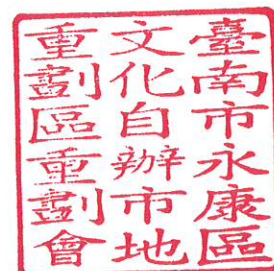 臺南市永康區
文化自辦市地
重劃區重劃會